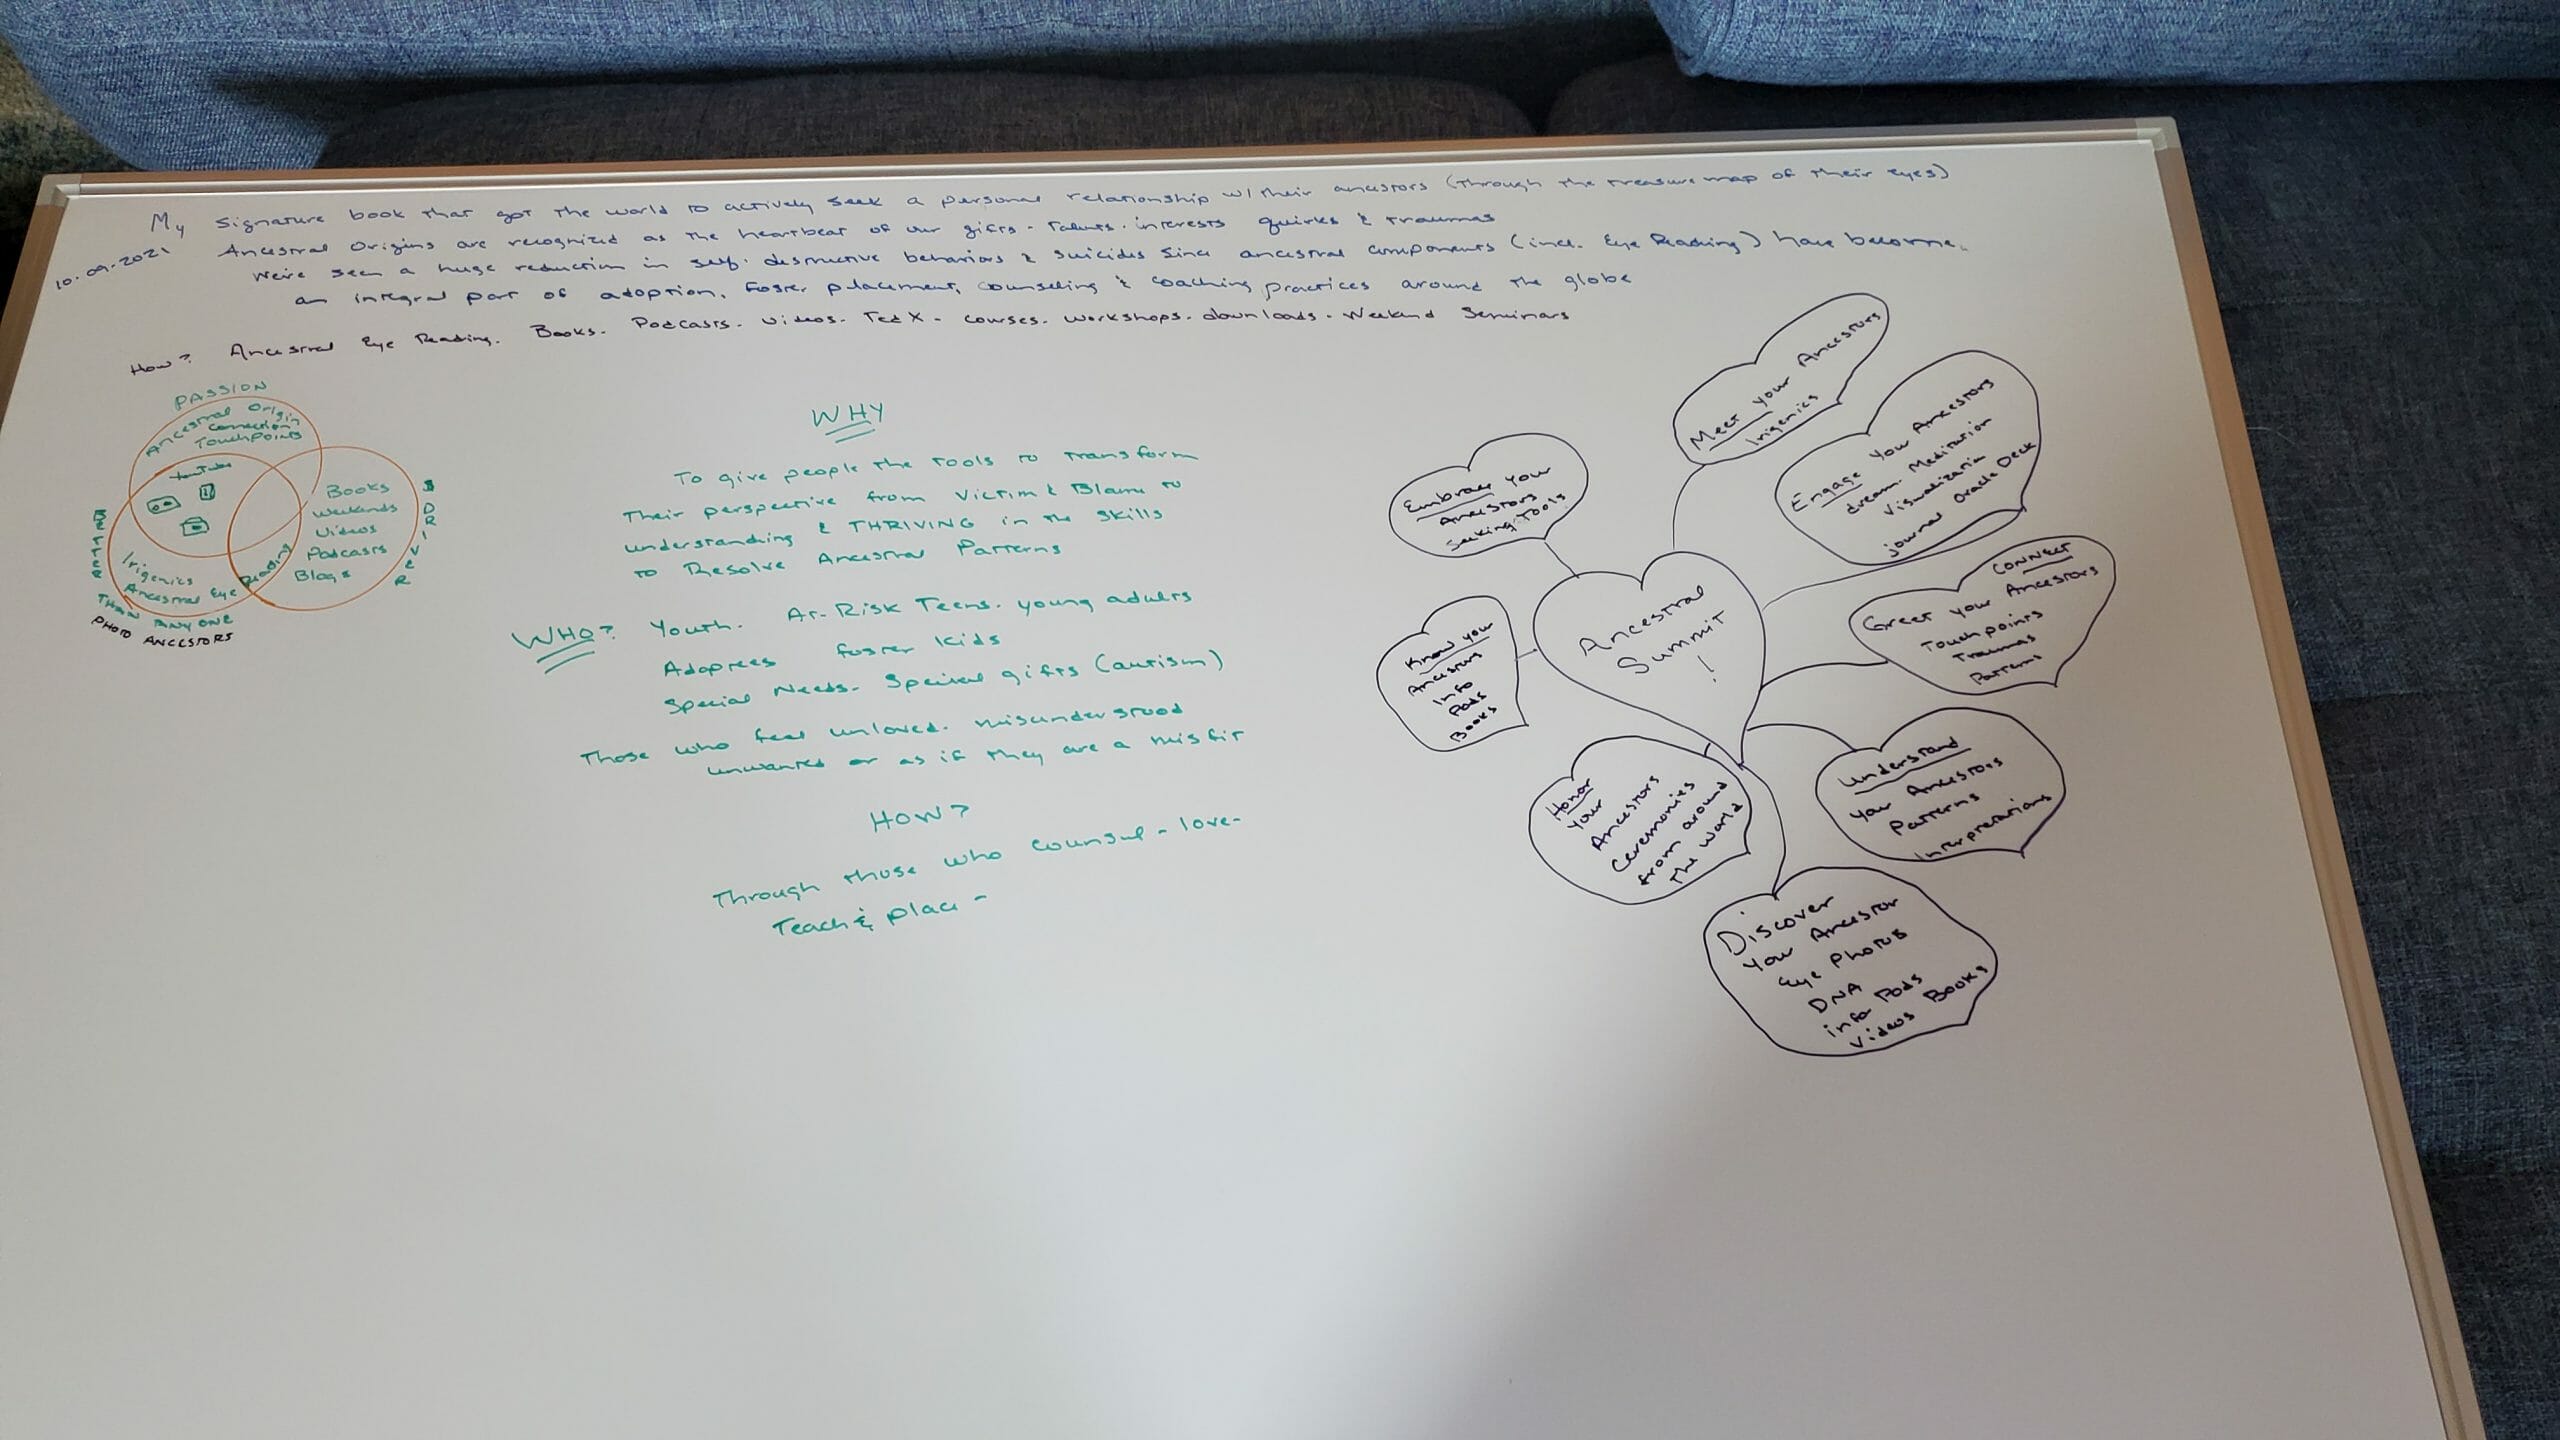 My Signature book that got the world to actively seek a personal relationship w/ their ancestors (through the treasure map of their eyes)
10.09.2021 Ancestral Origins are recognized as the heartbeat of our gifts - talents - interests quirks & traumas
We've seen a huge reduction in self-destructive behaviors & suicides since ancestral components (incl. Eye Reading) have become
an integral part of adoption, foster placement, counseling & coaching practices around the globe
How? Ancestral Eye Reading. Books. Podcasts. Videos. TedX - courses. workshops. downloads. Weekend Seminars
PASSION
Ancestral Origin
Connection
Touchpoints
YouTube
BETTER THAN ANYONE
Irigenics
Ancestral Eye Reading
PHOTO ANCESTORS
$ DRIVER
Books
Weekends
Videos
Podcasts
Blogs
WHY
To give people the tools to transform
their perspective from Victim & Blame to
understanding & THRIVING in the skills
to Resolve Ancestral Patterns
WHO? Youth. At-Risk Teens. young adults
Adoptees foster kids
Special Needs - Special gifts (autism)
Those who feel unloved. misunderstood
unwanted or as if they are a misfit
HOW?
Through those who counsel - love -
Teach & place -
Ancestral
Summit
!
Meet your Ancestors
Irigenics
Engage your Ancestors
dream. Meditation
Visualization
journal Oracle Deck
CONNECT
Greet your Ancestors
Touchpoints
Traumas
Patterns
Understand
your Ancestors
Patterns
Interpretations
Discover
your Ancestor
Eye Photos
DNA
info Pods
videos Books
Honor
your
Ancestors
Ceremonies
from around
the world
Know your
Ancestors
Info
Pods
Books
Embrace your
Ancestors
Seeking Tools